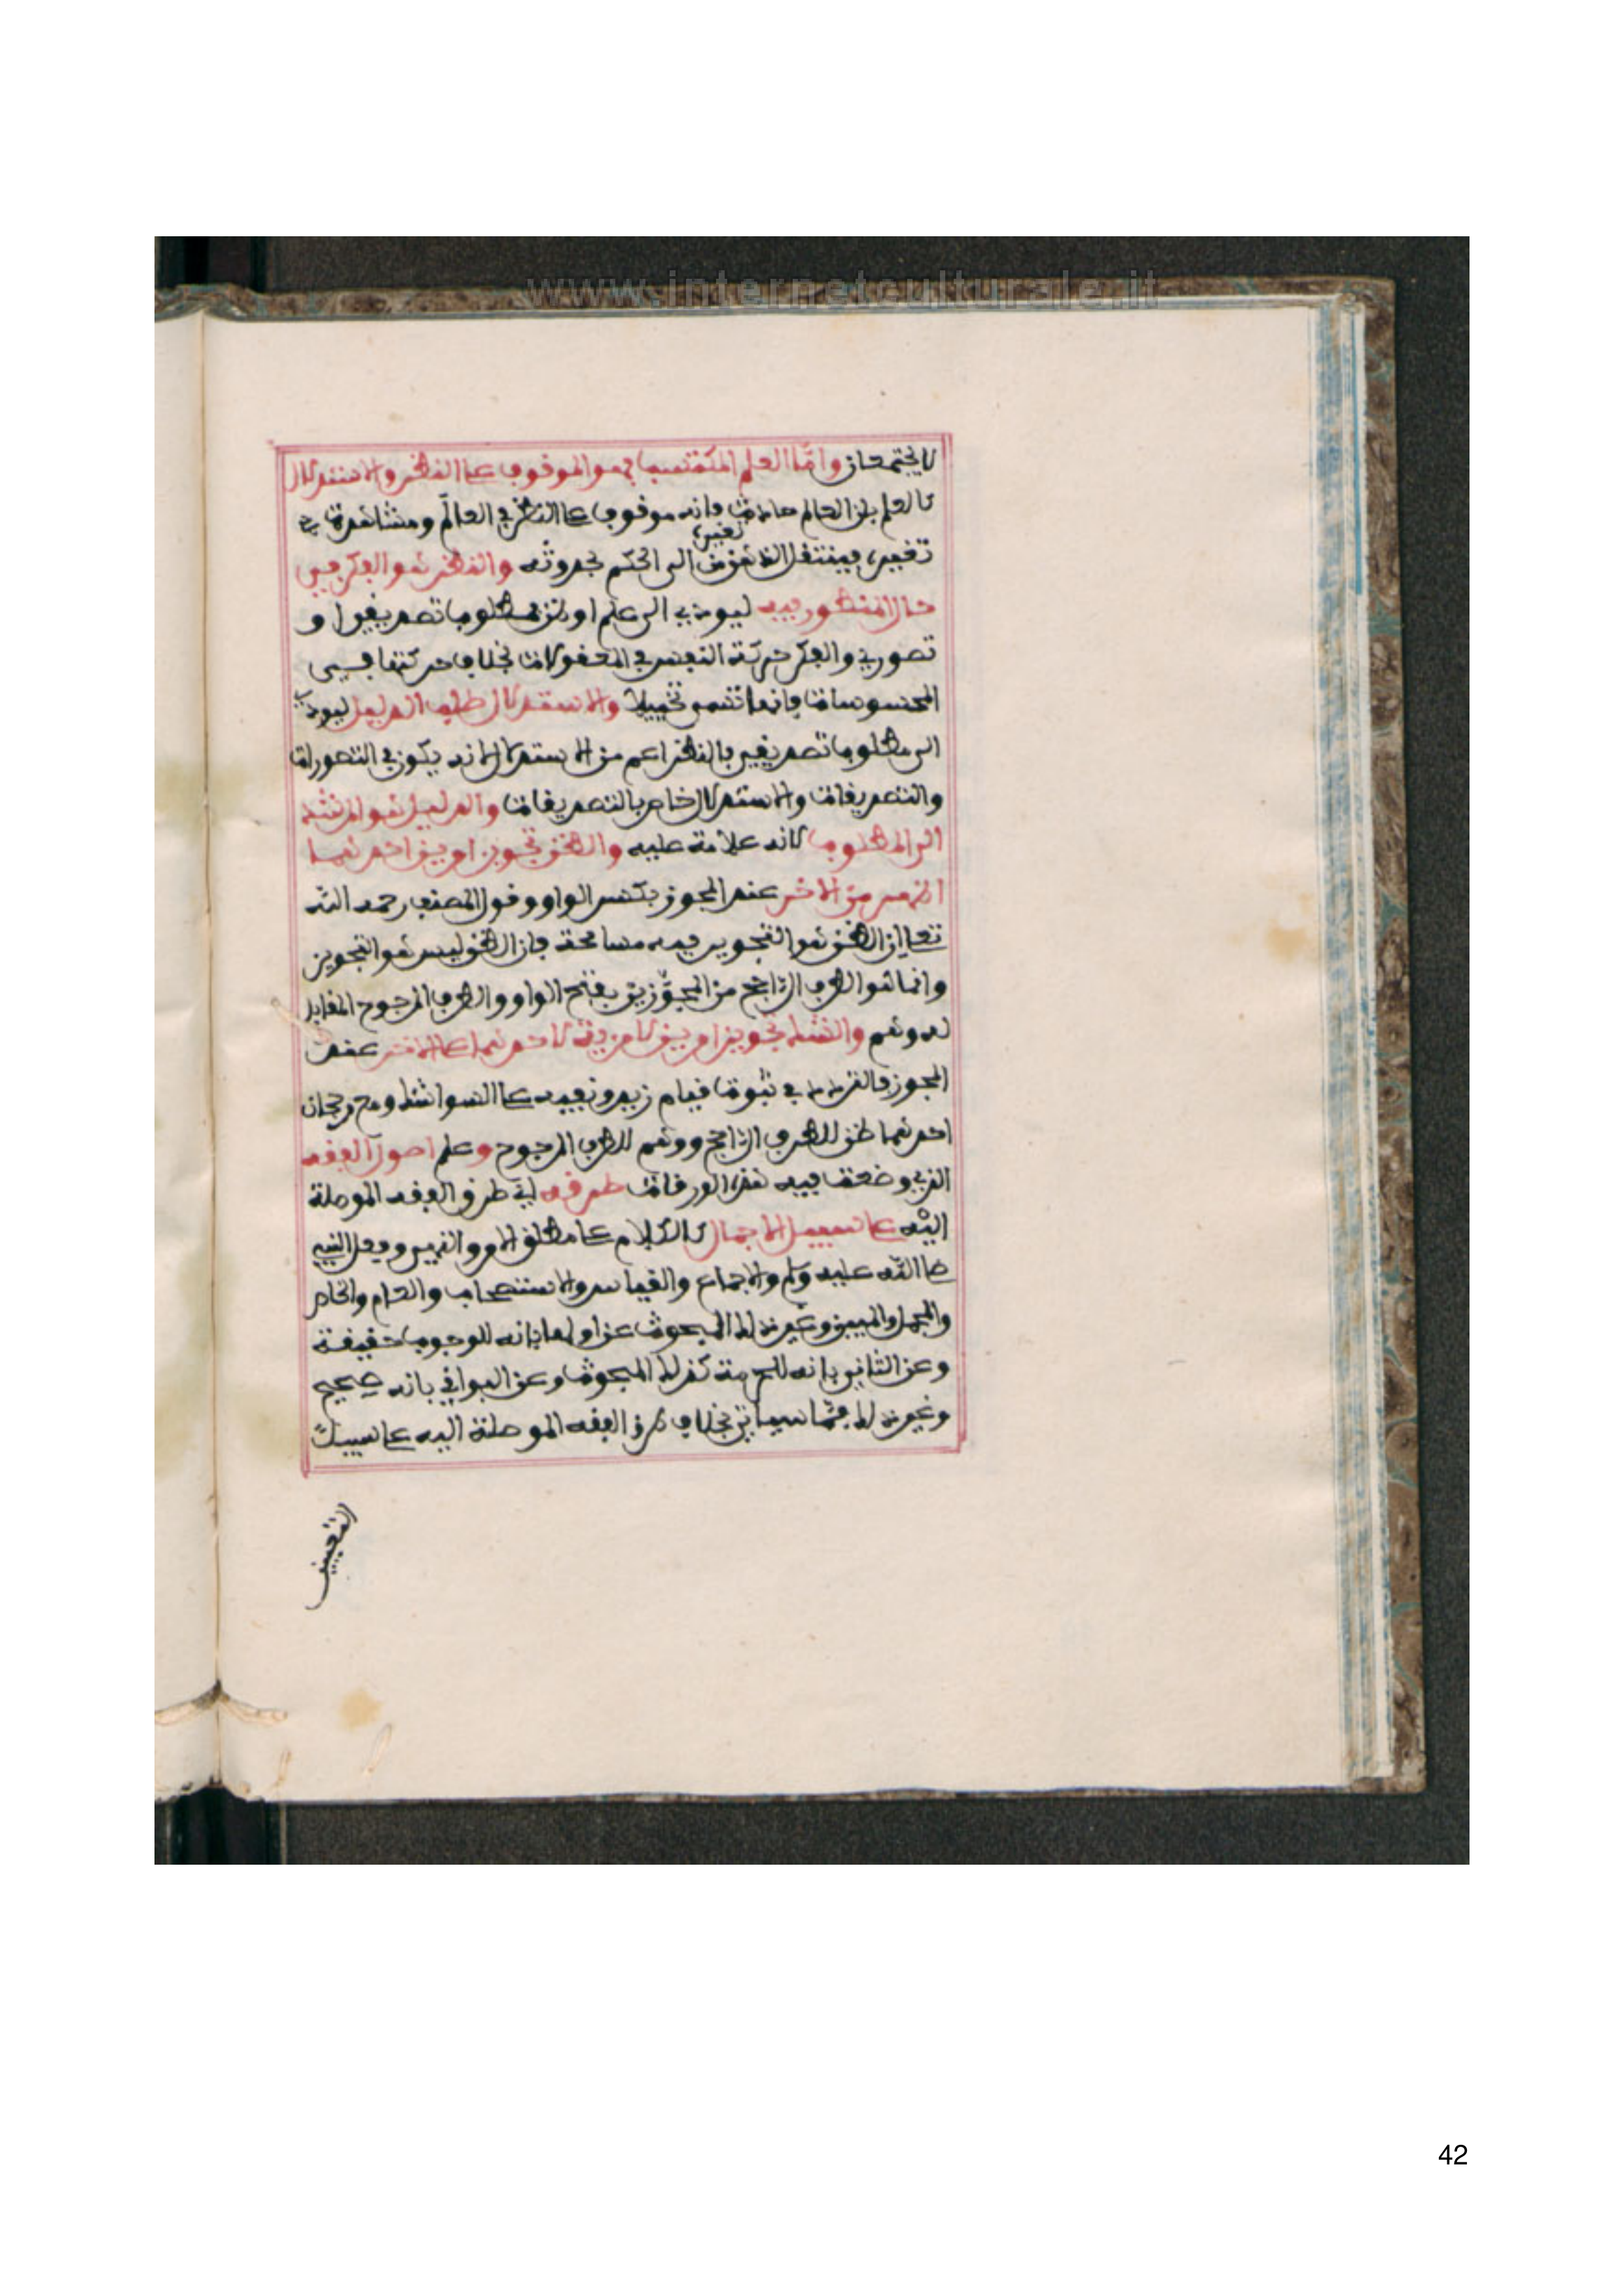 www.internetculturale.it
لا يجتمعان واما العلم المكتسب فهو الموقوف على النظر والاستدلال
كالعلم بان العالم حادث فانه موقوف على النظر في العالم ومشاهدة
تغيره فينتقل الذهن من تغيره الى الحكم بحدوثه والنظر هو الفكر في
حال المنظور فيه ليودي الى علم او ظن بمطلوب تصديقي او
تصوري والفكر حركة النفس في المعقولات بخلاف حركتها في
المحسوسات فانها تسمى تخييلا والاستدلال طلب الدليل ليودي
الى مطلوب تصديقي فالنظر اعم من الاستدلال لانه يكون في التصورات
والتصديقات والاستدلال خاص بالتصديقات والدليل هو المرشد
الى المطلوب لانه علامة عليه والظن تجويز امرين احدهما
اظهر من الاخر عند المجوز بكسر الواو وقول المصنف رحمه الله
تعالى ان الظن هو التجويز فيه مسامحة فان الظن ليس هو التجويز
وانما هو الطرف الراجح من المجوزين بفتح الواو والطرف المرجوح المقابل
له وهم والشك تجويز امرين لا مزية لاحدهما على الاخر عند
المجوز فالتردد في ثبوت قيام زيد ونفيه على السواء شك ومع رجحان
احدهما ظن للطرف الراجح ووهم للطرف المرجوح وعلم اصول الفقه
الذي وضعت فيه هذه الورقات طرقه اي طرق الفقه الموصلة
اليه على سبيل الاجمال كالكلام على مطلق الامر والنهي وفعل النبي
صلى الله عليه وسلم والاجماع والقياس والاستصحاب والعام والخاص
والمجمل والمبين وغير ذلك المبحوث عن اولها بانه للوجوب حقيقة
وعن الثاني بانه للحرمة كذلك المبحوث وعن البواقي بانه صحيح
وغير ذلك مما سياتي بخلاف طرق الفقه الموصلة اليه على سبيل
التعيين
42